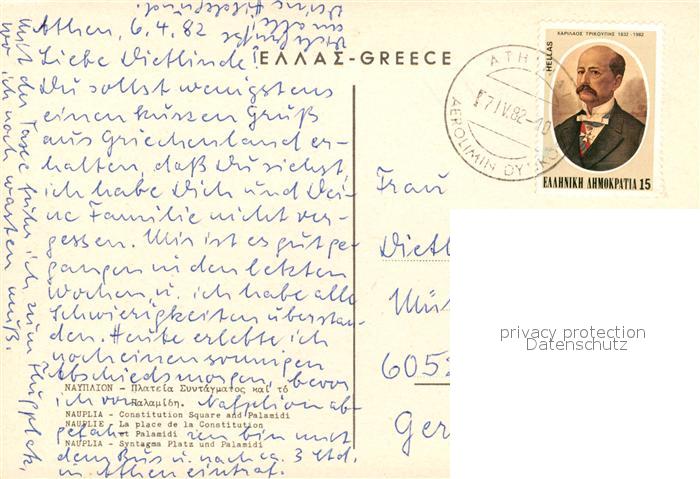 Athen, 6.4.82
Liebe Dietlinde!
Du sollst wenigstens
einen kurzen Gruß
aus Griechenland er-
halten, daß Du siehst,
ich habe Dich und Dei-
ne Familie nicht ver-
gessen. Mir ist es gut ge-
gangen in den letzten
Wochen, u. ich habe alle
Schwierigkeiten überstan-
den. Heute erlebte ich
noch einen sonnigen
Abschiedsmorgen, bevor
ich von Nafplion ab-
gefahren bin mit
dem Bus u. nach ca. 3 Std.
in Athen eintraf.
Mit der Taxe fuhr ich zum Flugplatz,
wo ich noch warten muß.
ΕΛΛΑΣ-GREECE
ΝΑΥΠΛΙΟΝ - Πλατεῖα Συντάγματος καί τό
Παλαμίδη.
NAUPLIA - Constitution Square and Palamidi
NAUPLIE - La place de la Constitution
et Palamidi
NAUPLIA - Syntagma Platz und Palamidi
ΧΑΡΙΛΑΟΣ ΤΡΙΚΟΥΠΗΣ 1832-1982
HELLAS
ΕΛΛΗΝΙΚΗ ΔΗΜΟΚΡΑΤΙΑ 15
ATH
7 IV. 82-10
AEROLIMIN
Frau
Dietl
605
Ger
privacy protection
Datenschutz